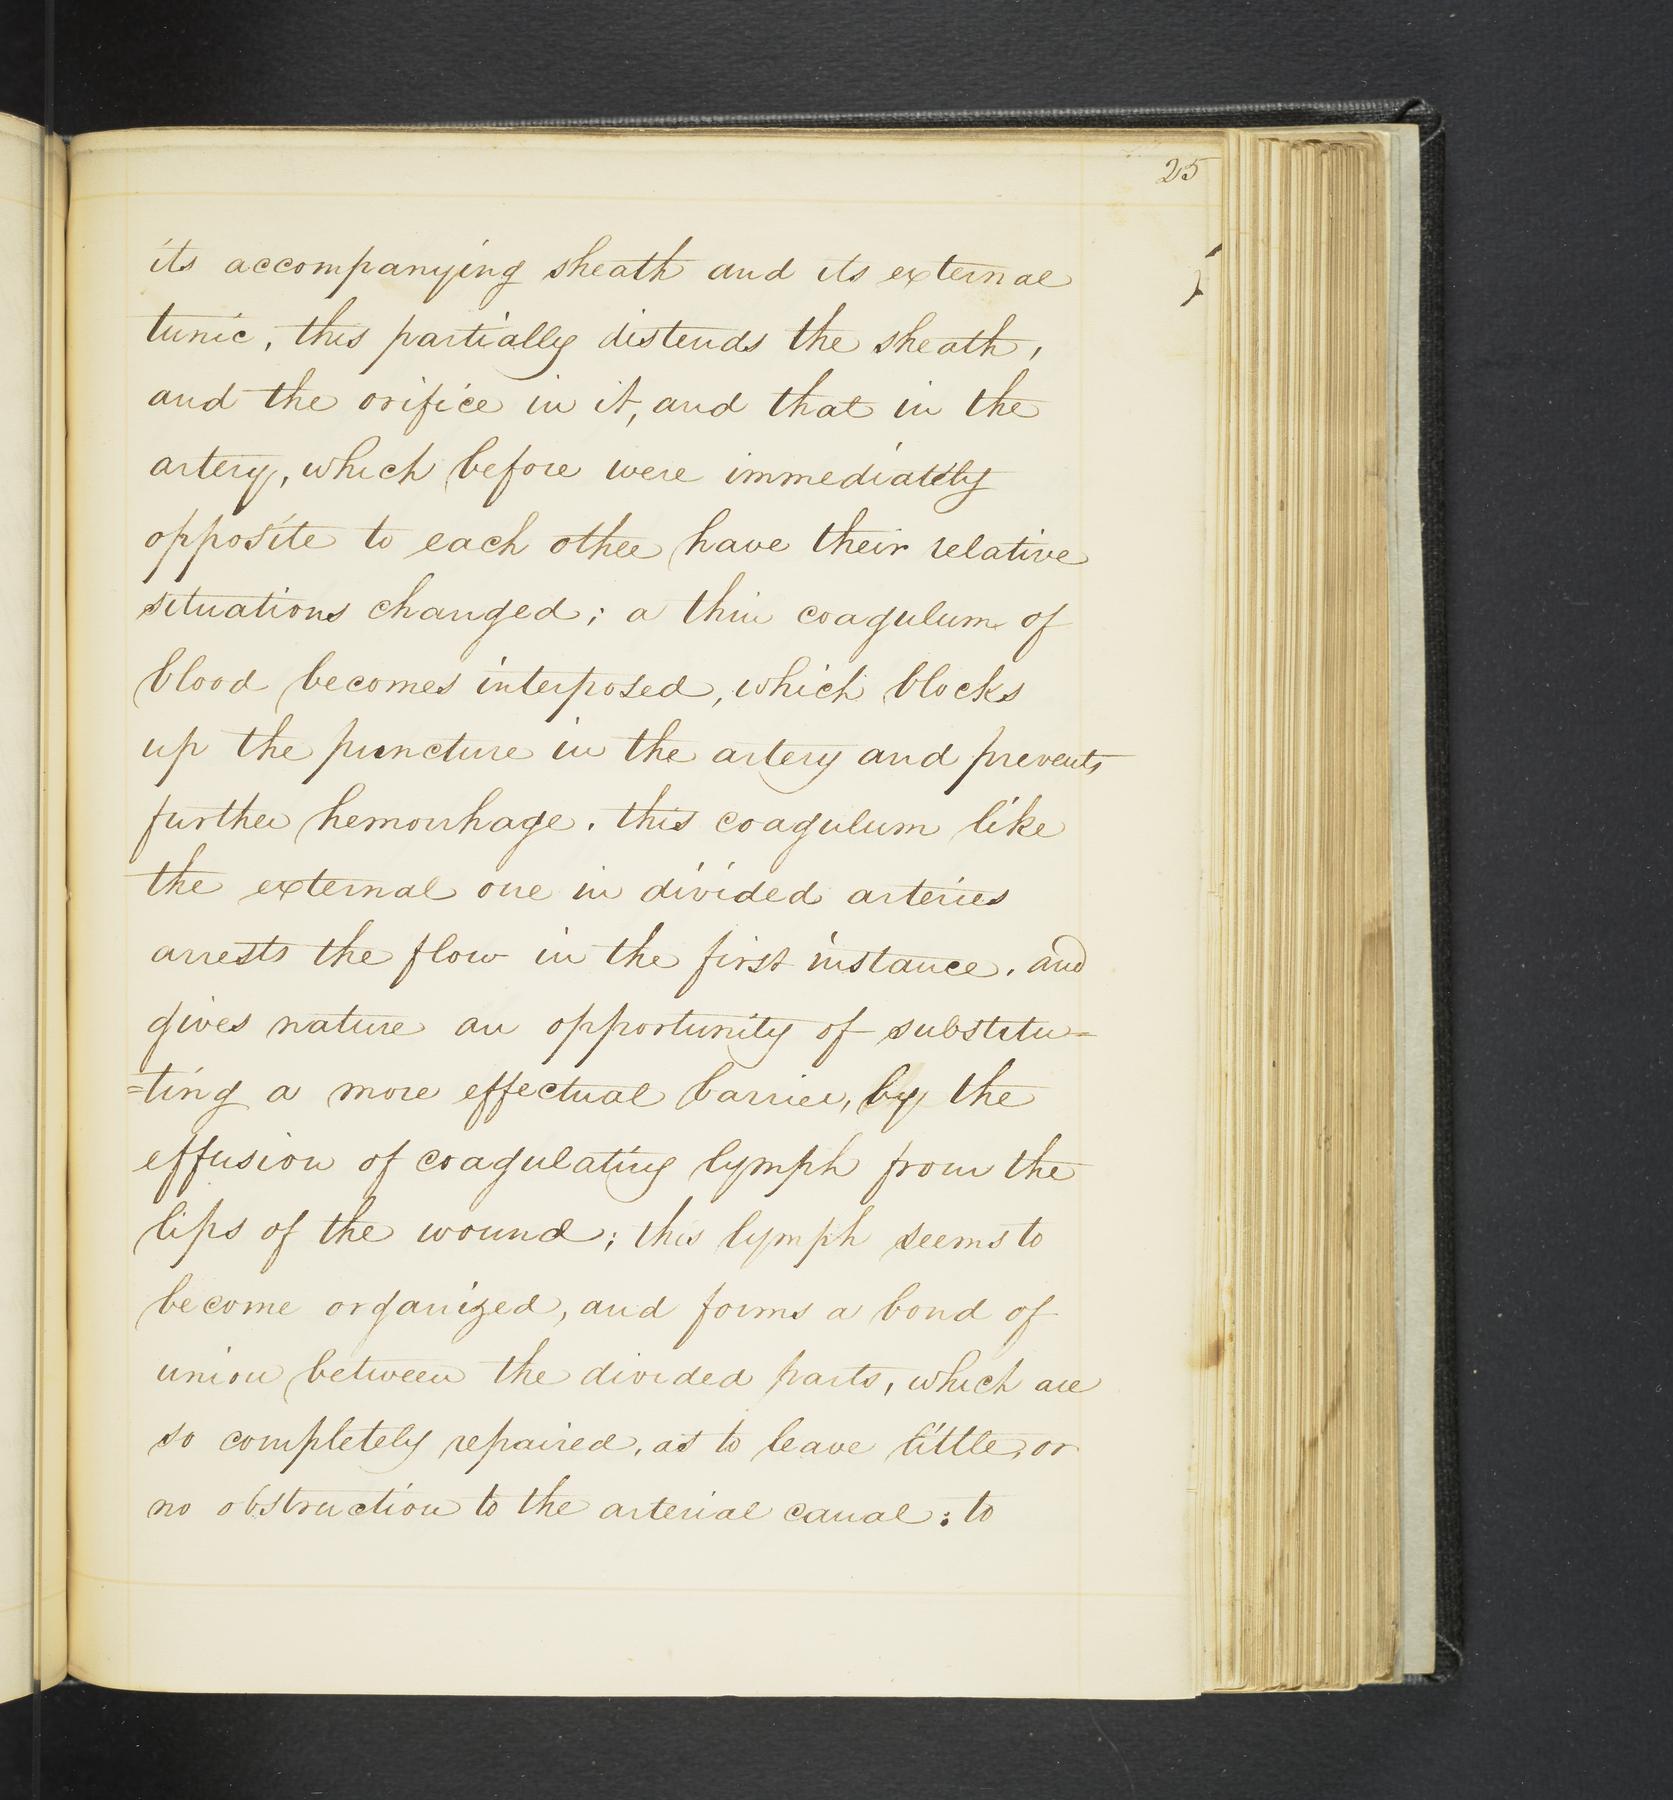 25
its accompanying sheath and its external
tunic, this partially distends the sheath,
and the orifice in it, and that in the
artery, which before were immediately
opposite to each other have their relative
situations changed; a thin coagulum of
blood becomes interposed, which blocks
up the puncture in the artery and prevents
further hemorrhage. this coagulum like
the external one in divided arteries
arrests the flow in the first instance. and
gives nature an opportunity of substitu=
=ting a more effectual barrier, by the
effusion of coagulating lymph from the
lips of the wound; this lymph seems to
become organized, and forms a bond of
union between the divided parts, which are
so completely repaired, as to leave little, or
no obstruction to the arterial canal: to